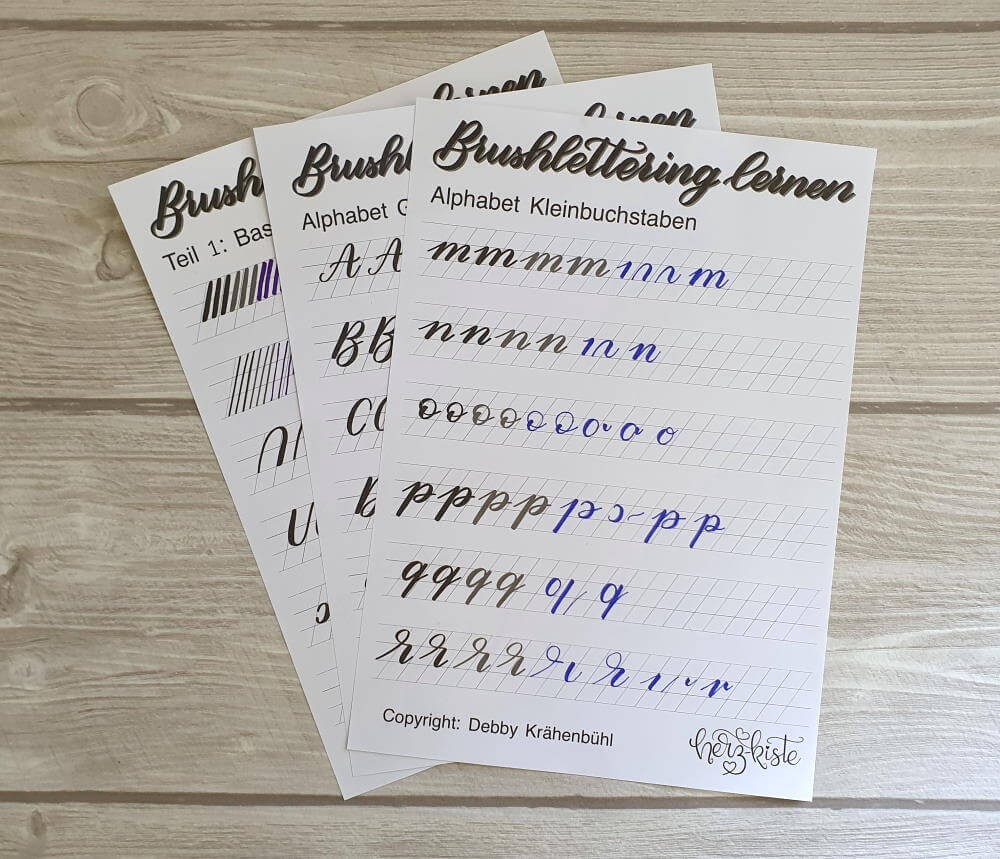 Brush
Teil 1: Bas
Brushl
Alphabet G
A A
B B
C C
lernen
Brushlettering lernen
Alphabet Kleinbuchstaben
m m m m m
n n n n n
o o o o o o o o o
p p p p p p p
q q q q q q
r r r r r r r
Copyright: Debby Krähenbühl
herz-kiste